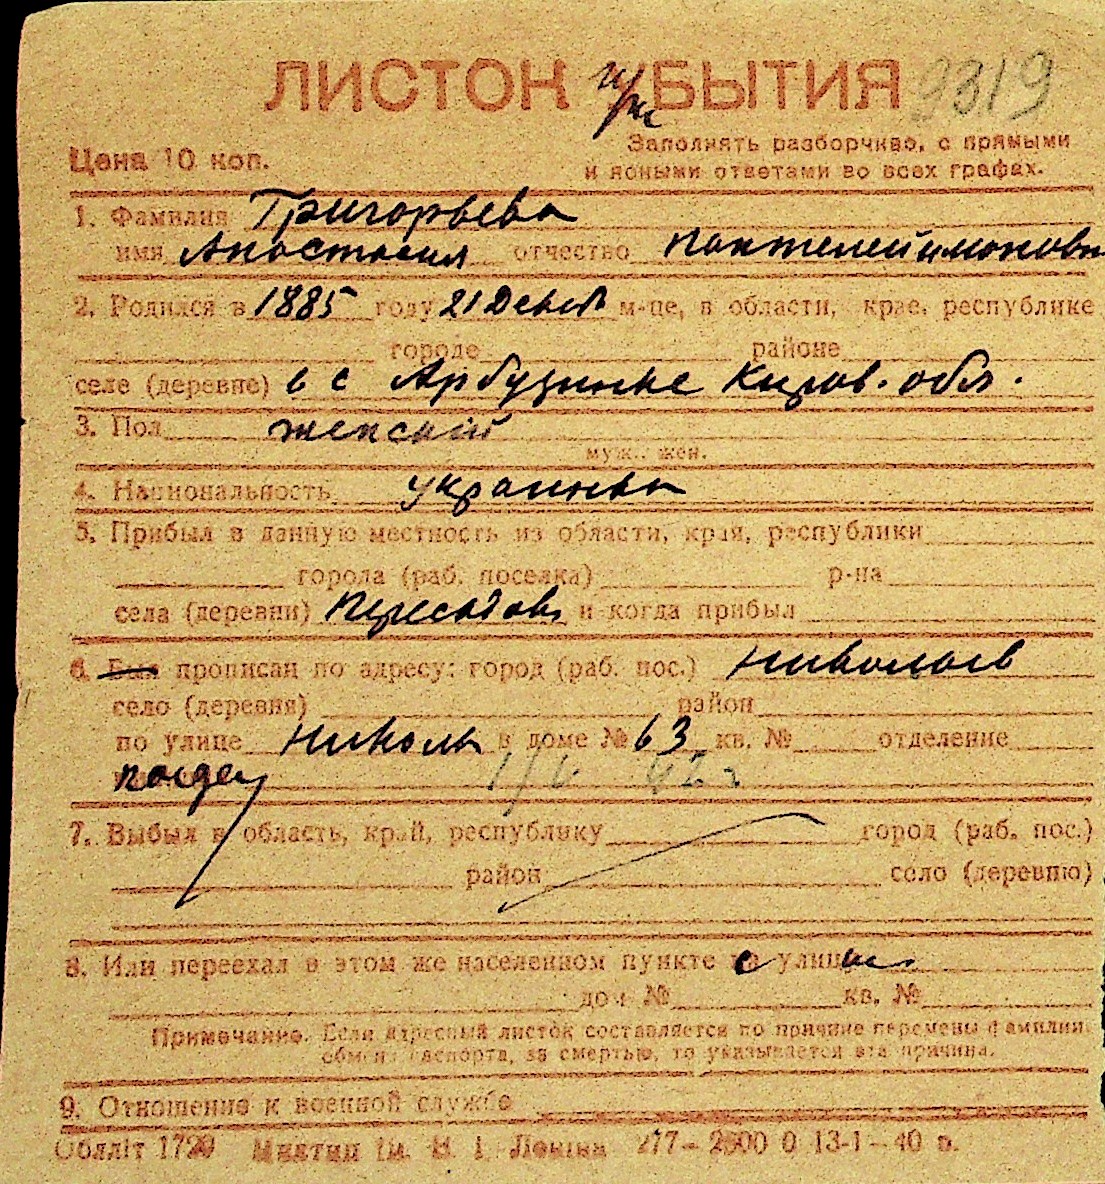 ЛИСТОК УБЫТИЯ 9319
Цена 10 коп. Заполнять разборчиво, с прямыми
и ясными ответами во всех графах.
1. Фамилия Григорьева
имя Анастасия отчество Пантелеймоновн
2. Родился в 1885 году 21 Декаб м-це, в области, крае, республике
городе районе
селе (деревне) в с Арбузинке Киров. обл.
3. Пол женский
муж., жен.
4. Национальность украинка
5. Прибыл в данную местность из области, края, республики
города (раб. поселка) р-на
села (деревни) Пересадовк и когда прибыл
6. Был прописан по адресу: город (раб. пос.) Николаев
село (деревня) район
по улице Николь в доме № 63 кв. № отделение
42 г.
7. Выбыл в область, край, республику город (раб. пос.)
район село (деревню)
8. Или переехал в этом же населенном пункте с улицы
дом № кв. №
Примечание. Если адресный листок составляется по причине перемены фамилии,
обмена паспорта, за смертью, то указывается эта причина.
9. Отношение к военной службе
Обллiт 1729 Ленiна 277—2600 0 13-1—40 в.